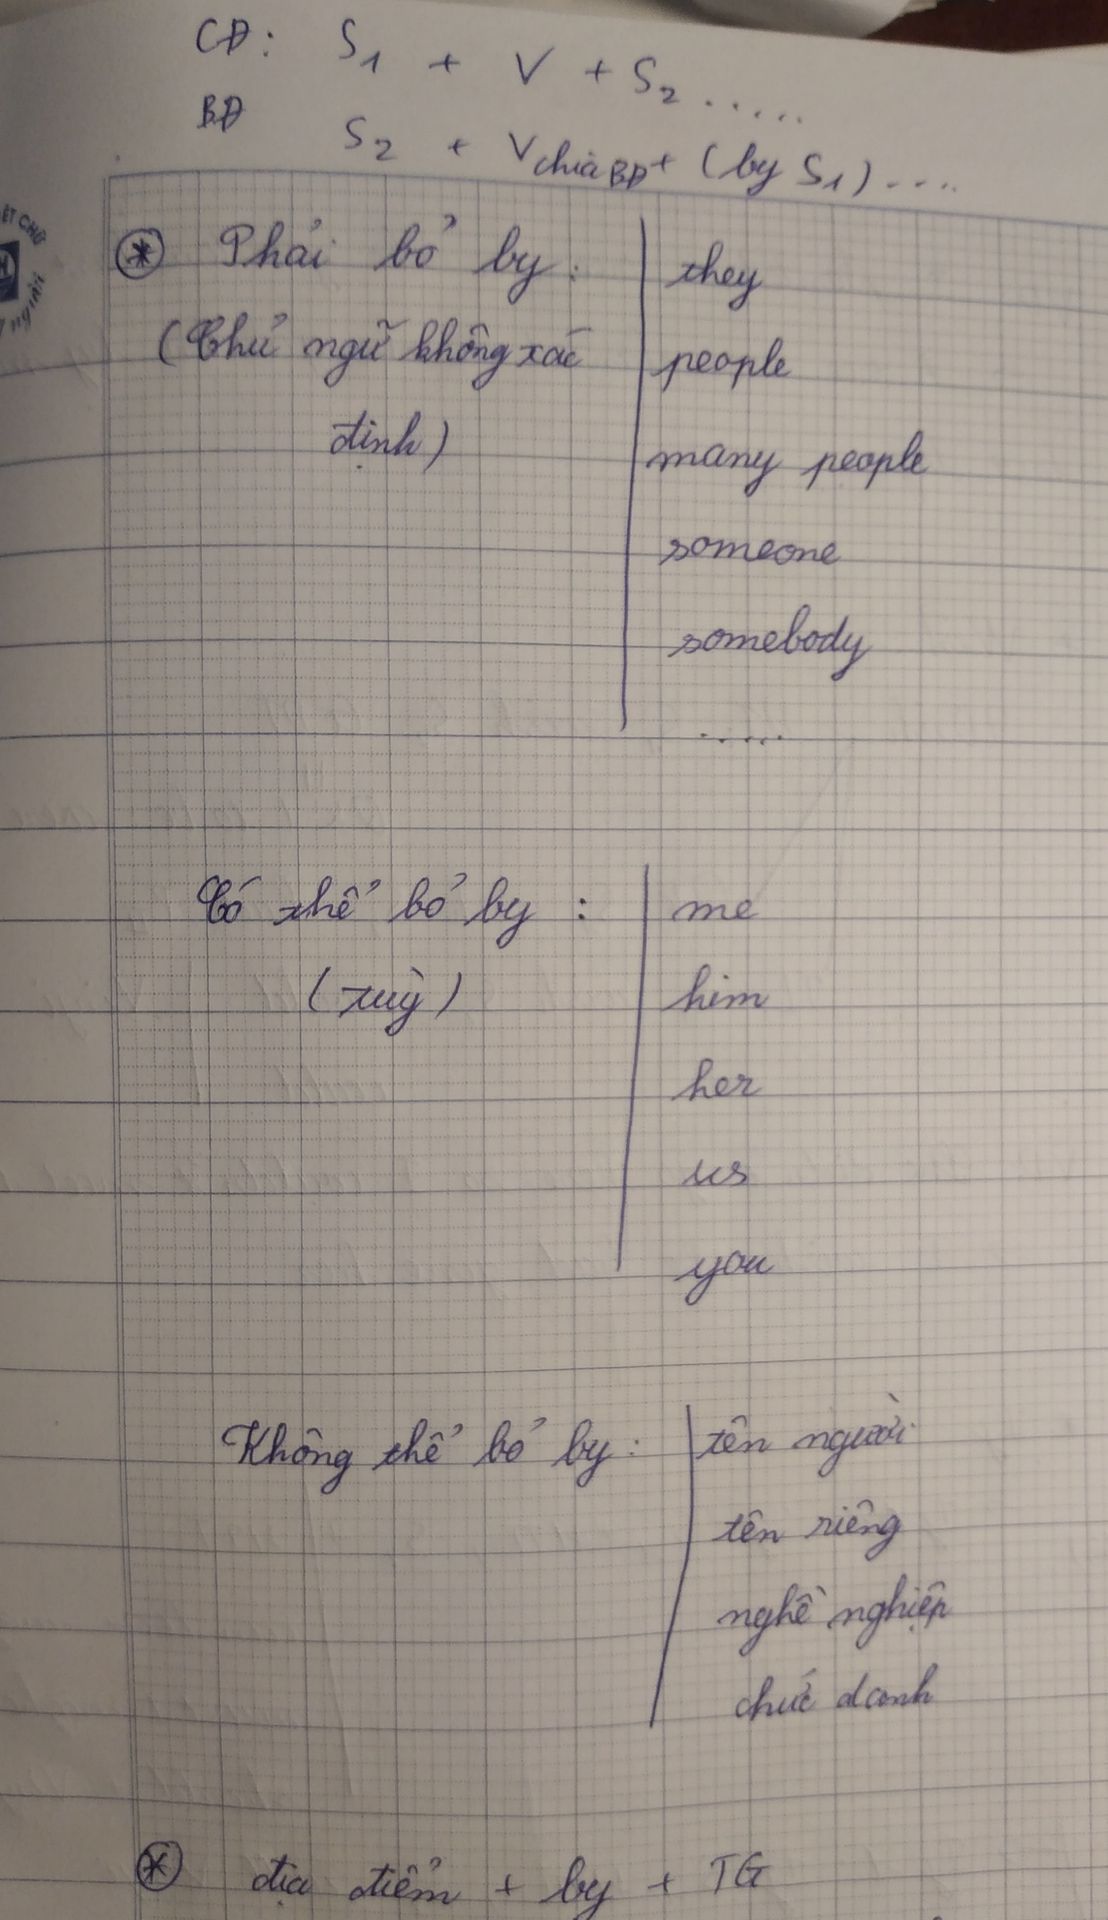 CĐ: S1 + V + S2 .....
BĐ S2 + Vchia BĐ + (by S1) ....
ⓧ Phải bỏ by : they
(Chủ ngữ không xác people
định) many people
someone
somebody
.....
Có thể bỏ by : me
(tuỳ) him
her
us
you
Không thể bỏ by : tên người
tên riêng
nghề nghiệp
chức danh
ⓧ địa điểm + by + TG